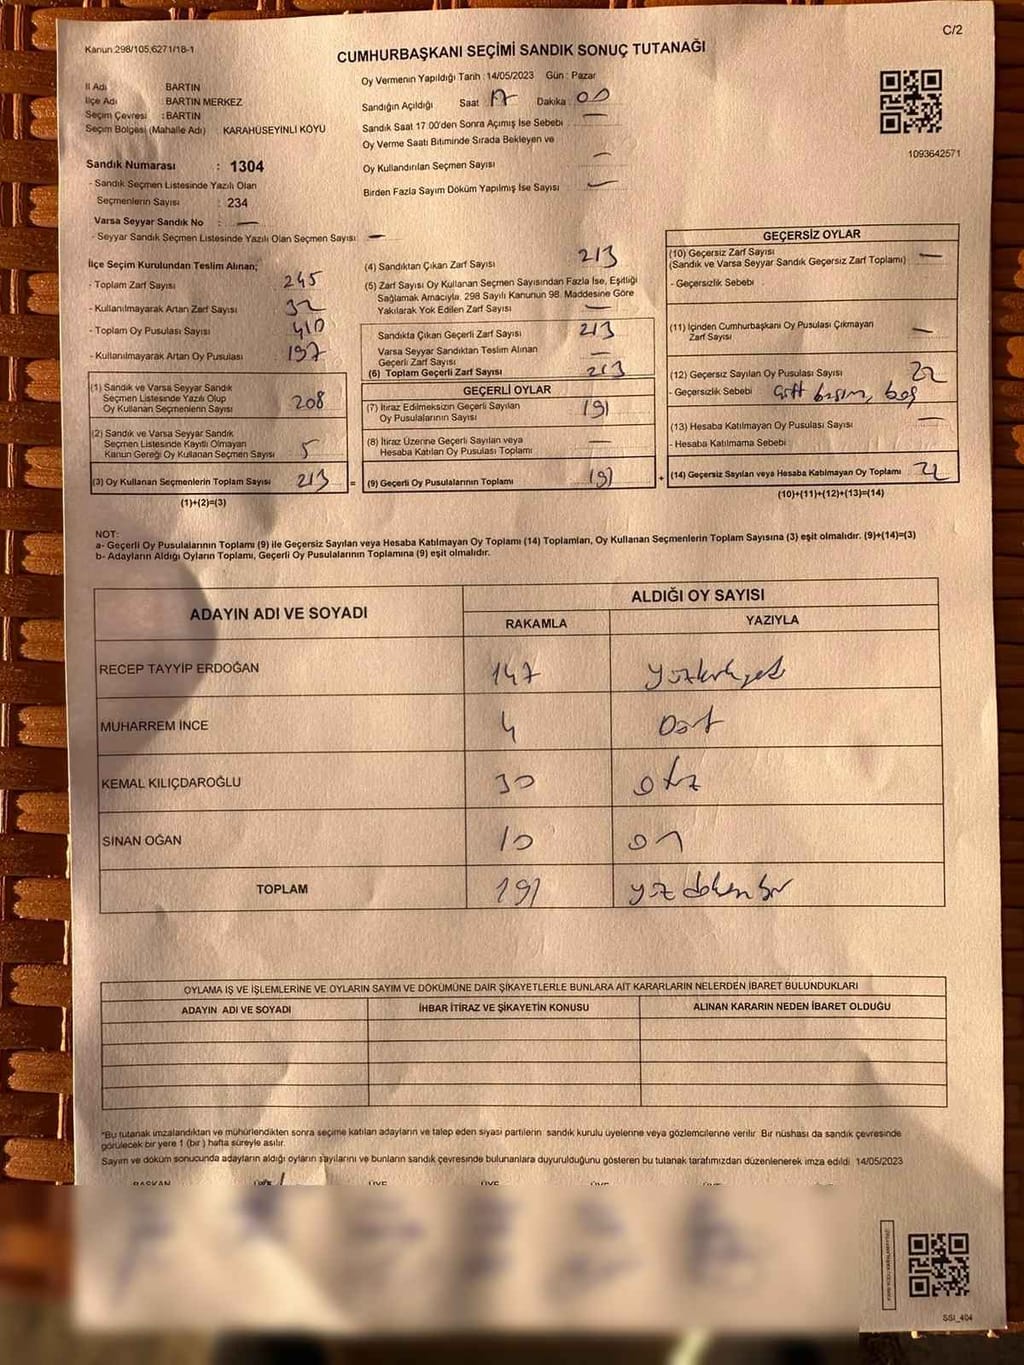 C/2
Kanun 298/105,6271/18-1
CUMHURBAŞKANI SEÇİMİ SANDIK SONUÇ TUTANAĞI
İl Adı BARTIN
İlçe Adı BARTIN MERKEZ
Seçim Çevresi : BARTIN
Seçim Bölgesi (Mahalle Adı) KARAHÜSEYİNLİ KÖYÜ
Sandık Numarası : 1304
- Sandık Seçmen Listesinde Yazılı Olan
Seçmenlerin Sayısı : 234
Varsa Seyyar Sandık No : —
- Seyyar Sandık Seçmen Listesinde Yazılı Olan Seçmen Sayısı : —
Oy Vermenin Yapıldığı Tarih : 14/05/2023 Gün : Pazar
Sandığın Açıldığı Saat 17 Dakika 00
Sandık Saat 17:00'den Sonra Açımış İse Sebebi —
Oy Verme Saati Bitiminde Sırada Bekleyen ve
Oy Kullandırılan Seçmen Sayısı —
Birden Fazla Sayım Döküm Yapılmış İse Sayısı : —
1093642571
İlçe Seçim Kurulundan Teslim Alınan;
- Toplam Zarf Sayısı 245
- Kullanılmayarak Artan Zarf Sayısı 32
- Toplam Oy Pusulası Sayısı 410
- Kullanılmayarak Artan Oy Pusulası 197
(1) Sandık ve Varsa Seyyar Sandık
Seçmen Listesinde Yazılı Olup
Oy Kullanan Seçmenlerin Sayısı 208
(2) Sandık ve Varsa Seyyar Sandık
Seçmen Listesinde Kayıtlı Olmayan
Kanun Gereği Oy Kullanan Seçmen Sayısı 5
(3) Oy Kullanan Seçmenlerin Toplam Sayısı 213 =
(1)+(2)=(3)
(4) Sandıktan Çıkan Zarf Sayısı 213
(5) Zarf Sayısı Oy Kullanan Seçmen Sayısından Fazla İse, Eşitliği
Sağlamak Amacıyla, 298 Sayılı Kanunun 98. Maddesine Göre
Yakılarak Yok Edilen Zarf Sayısı —
Sandıkta Çıkan Geçerli Zarf Sayısı 213
Varsa Seyyar Sandıktan Teslim Alınan
Geçerli Zarf Sayısı —
(6) Toplam Geçerli Zarf Sayısı 213
GEÇERLİ OYLAR
(7) İtiraz Edilmeksizin Geçerli Sayılan
Oy Pusulalarının Sayısı 191
(8) İtiraz Üzerine Geçerli Sayılan veya
Hesaba Katılan Oy Pusulası Toplamı —
(9) Geçerli Oy Pusulalarının Toplamı 191 +
GEÇERSİZ OYLAR
(10) Geçersiz Zarf Sayısı
(Sandık ve Varsa Seyyar Sandık Geçersiz Zarf Toplamı) —
- Geçersizlik Sebebi
(11) İçinden Cumhurbaşkanı Oy Pusulası Çıkmayan
Zarf Sayısı —
(12) Geçersiz Sayılan Oy Pusulası Sayısı 22
- Geçersizlik Sebebi çift basım, boş
(13) Hesaba Katılmayan Oy Pusulası Sayısı —
- Hesaba Katılmama Sebebi
(14) Geçersiz Sayılan veya Hesaba Katılmayan Oy Toplamı 22
(10)+(11)+(12)+(13)=(14)
NOT:
a- Geçerli Oy Pusulalarının Toplamı (9) ile Geçersiz Sayılan veya Hesaba Katılmayan Oy Toplamı (14) Toplamları, Oy Kullanan Seçmenlerin Toplam Sayısına (3) eşit olmalıdır. (9)+(14)=(3)
b- Adayların Aldığı Oyların Toplamı, Geçerli Oy Pusulalarının Toplamına (9) eşit olmalıdır.
ADAYIN ADI VE SOYADI ALDIĞI OY SAYISI
RAKAMLA YAZIYLA
RECEP TAYYİP ERDOĞAN 147 yüzkırkyedi
MUHARREM İNCE 4 Dört
KEMAL KILIÇDAROĞLU 30 otuz
SİNAN OĞAN 10 on
TOPLAM 191 yüz doksan bir
OYLAMA İŞ VE İŞLEMLERİNE VE OYLARIN SAYIM VE DÖKÜMÜNE DAİR ŞİKAYETLERLE BUNLARA AİT KARARLARIN NELERDEN İBARET BULUNDUKLARI
ADAYIN ADI VE SOYADI İHBAR İTİRAZ VE ŞİKAYETİN KONUSU ALINAN KARARIN NEDEN İBARET OLDUĞU
*Bu tutanak imzalandıktan ve mühürlendikten sonra seçime katılan adayların ve talep eden siyasi partilerin sandık kurulu üyelerine veya gözlemcilerine verilir. Bir nüshası da sandık çevresinde
görülecek bir yere 1 (bir) hafta süreyle asılır.
Sayım ve döküm sonucunda adayların aldığı oyların sayılarını ve bunların sandık çevresinde bulunanlara duyurulduğunu gösteren bu tutanak tarafımızdan düzenlenerek imza edildi 14/05/2023
BAŞKAN ÜYE ÜYE ÜYE ÜYE ÜYE
SSI_404